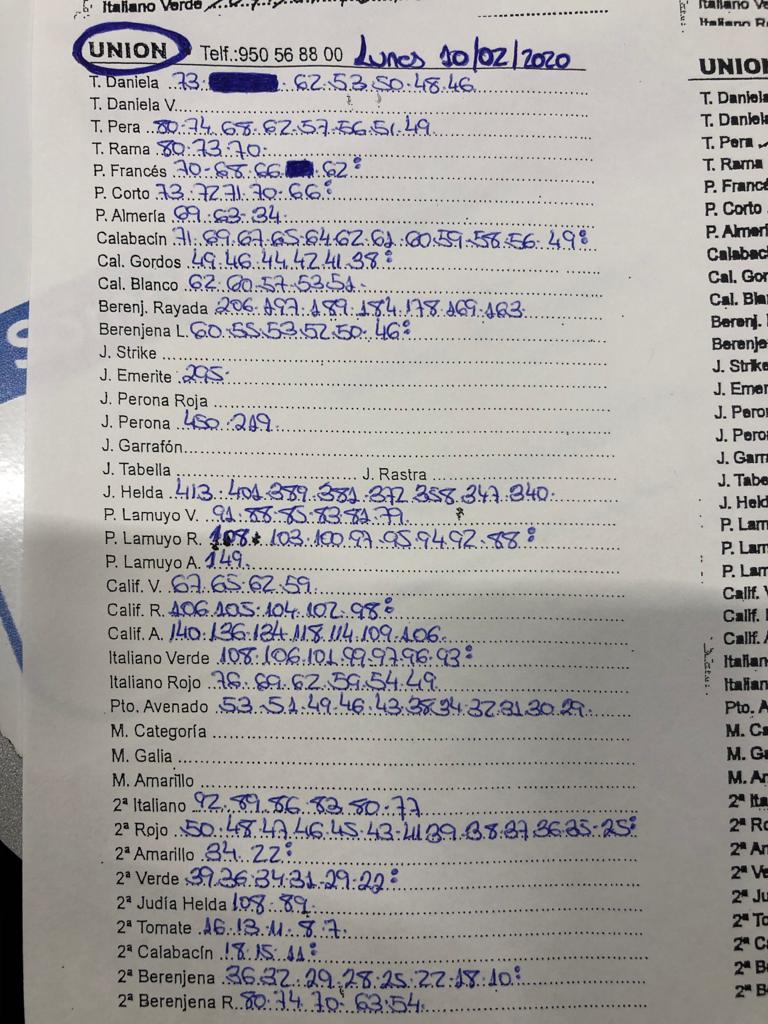 Italiano Verde
UNION Telf.:950 56 88 00 Lunes 10/02/2020
T. Daniela 73. . 62.53.50.48.46
T. Daniela V.
T. Pera 80.74.68.62.57.56.51.49
T. Rama 80.73.70.
P. Francés 70-68.66. .62:
P. Corto 73.72.71.70.66:
P. Almería 69.63.34.
Calabacín 71.69.67.65.64.62.61.60.59.58.56.49:
Cal. Gordos 49.46.44.42.41.38:
Cal. Blanco 62.60.57.53.51.
Berenj. Rayada 206.197.189.184.178.169.163
Berenjena L. 60.55.53.52.50.46:
J. Strike
J. Emerite 295.
J. Perona Roja
J. Perona 450.219.
J. Garrafón
J. Tabella J. Rastra
J. Helda 413.401.389.381.372.358.347.340.
P. Lamuyo V. 91.88.85.83.81.79.
P. Lamuyo R. 108. 103.100.97.95.94.92.88:
P. Lamuyo A. 149.
Calif. V. 67.65.62.59.
Calif. R. 106.105.104.102.98:
Calif. A. 140.136.134.118.114.109.106.
Italiano Verde 108.106.101.99.97.96.93:
Italiano Rojo 76.69.62.59.54.49.
Pto. Avenado 53.51.49.46.43.38.34.32.31.30.29.
M. Categoría
M. Galia
M. Amarillo
2ª Italiano 92.89.86.83.80.77
2ª Rojo 50.48.47.46.45.43-41.39.38.37.36.35-25:
2ª Amarillo 34.22:
2ª Verde 39.36.34.31.29.22:
2ª Judía Helda 108.89.
2ª Tomate 16.13.11.8.7.
2ª Calabacín 18.15.11:
2ª Berenjena 36.32.29.28.25.22.18.10:
2ª Berenjena R. 80.74.70. 63.54.
Italiano Ve
Italiano R
UNION
T. Daniela
T. Daniel
T. Pera
T. Rama
P. Francé
P. Corto
P. Almerí
Calabac
Cal. Gor
Cal. Bla
Berenj.
Berenje
J. Strike
J. Emer
J. Pero
J. Pero
J. Garr
J. Tabe
J. Held
P. Lam
P. Lam
P. Lam
Calif. V
Calif.
Calif.
Italian
Italian
Pto. A
M. Ca
M. Ga
M. Ar
2ª Ita
2ª Ro
2ª Ar
2ª Ve
2ª Ju
2ª To
2ª C
2ª B
2ª B